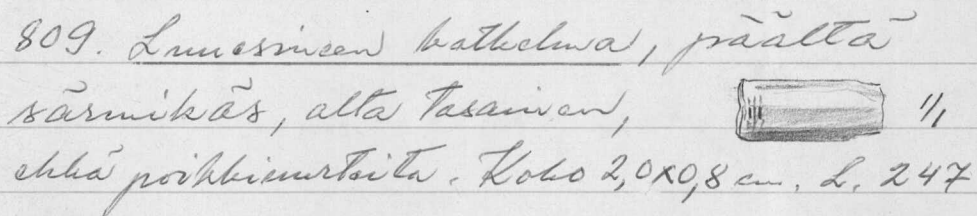 809. Luuesineen katkelma, päältä
särmikäs, alta tasainen, 1/1
ehkä poikkiuurteita. Koko 2,0x0,8 cm. L. 247